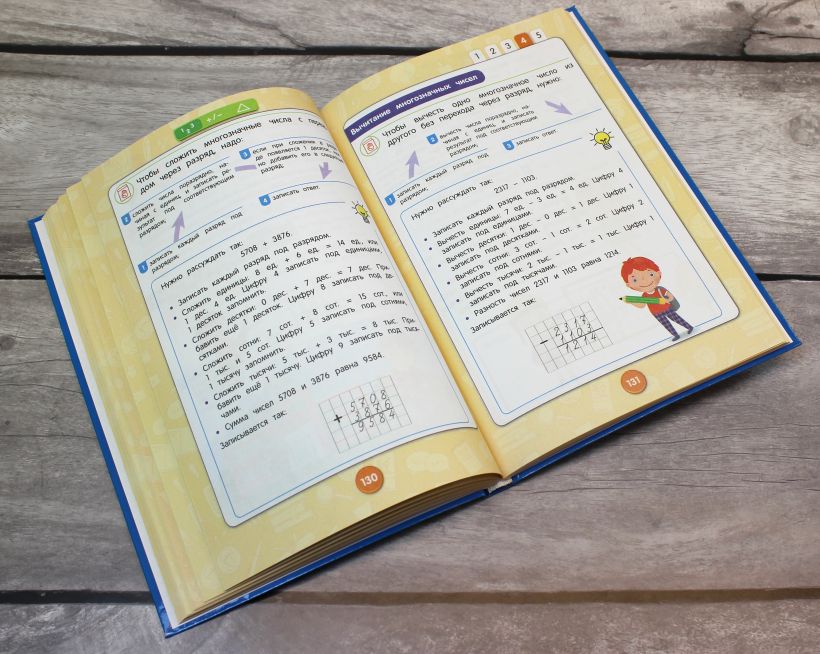 1 2 3 +/-
Чтобы сложить многозначные числа с
дом через разряд, надо:
2 сложить числа поразрядно, на-
чиная с единиц и записать ре-
зультат под соответствующим
разрядом;
3 если при сложении в
де появляется 1 десяток,
но добавить его в
разряд;
1 записать каждый разряд под
разрядом;
4 записать ответ.
Нужно рассуждать так:
5708 + 3876.
• Записать каждый разряд под разрядом.
• Сложить единицы: 8 ед. + 6 ед. = 14 ед., или
1 дес. и 4 ед. Цифру 4 записать под единицами,
1 десяток запомнить.
• Сложить десятки: 0 дес. + 7 дес. = 7 дес. При-
бавить ещё 1 десяток. Цифру 8 записать под де-
сятками.
• Сложить сотни: 7 сот. + 8 сот. = 15 сот., или
1 тыс. и 5 сот. Цифру 5 записать под сотнями,
1 тысячу запомнить.
• Сложить тысячи: 5 тыс. + 3 тыс. = 8 тыс. При-
бавить ещё 1 тысячу. Цифру 9 записать под тыся-
чами.
• Сумма чисел 5708 и 3876 равна 9584.
Записывается так:
5708
+
3876
9584
130
1 2 3 4 5
Вычитание многозначных чисел
Чтобы вычесть одно многозначное число из
другого без перехода через разряд, нужно:
2 вычесть числа поразрядно, на-
чиная с единиц, и записать
результат под соответствующим
разрядом;
1 записать каждый разряд под
разрядом;
3 записать ответ.
Нужно рассуждать так:
2317 – 1103.
• Записать каждый разряд под разрядом.
• Вычесть единицы: 7 ед. – 3 ед. = 4 ед. Цифру 4
записать под единицами.
• Вычесть десятки: 1 дес. – 0 дес. = 1 дес. Цифру 1
записать под десятками.
• Вычесть сотни: 3 сот. – 1 сот. = 2 сот. Цифру 2
записать под сотнями.
• Вычесть тысячи: 2 тыс. – 1 тыс. = 1 тыс. Цифру 1
записать под тысячами.
• Разность чисел 2317 и 1103 равна 1214.
Записывается так:
2317
–
1103
1214
131